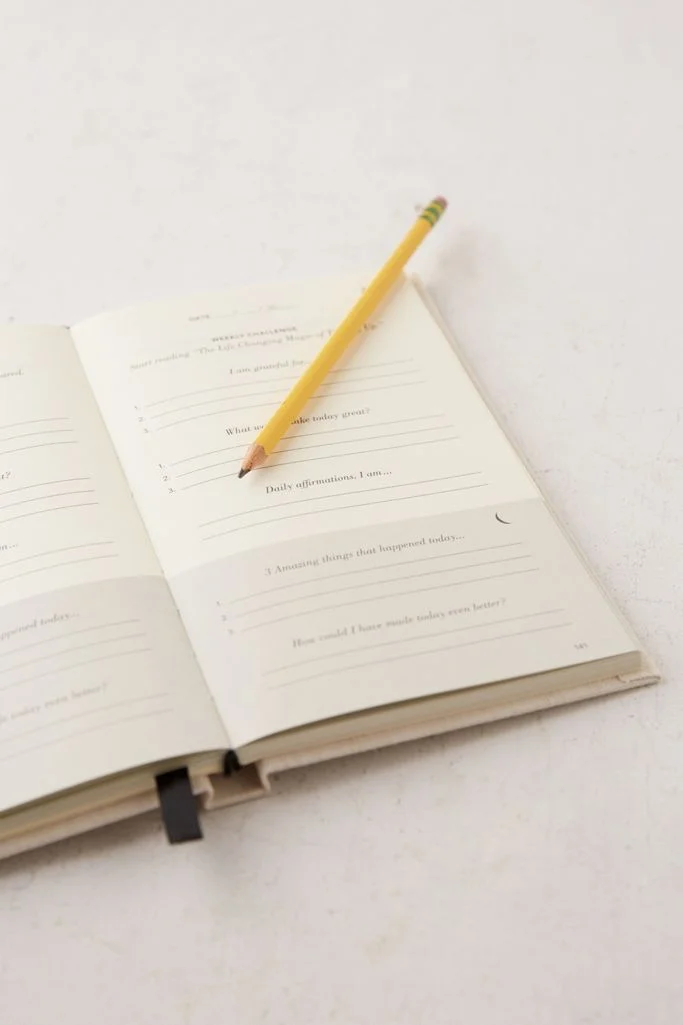 ared.
t?
n...
ppened today...
today even better?
DATE
WEEKLY CHALLENGE
Start reading "The Life Changing Magic of Up"
I am grateful for...
1.
2.
3.
What wo ake today great?
1.
2.
3.
Daily affirmations, I am...
3 Amazing things that happened today...
1.
2.
3.
How could I have made today even better?